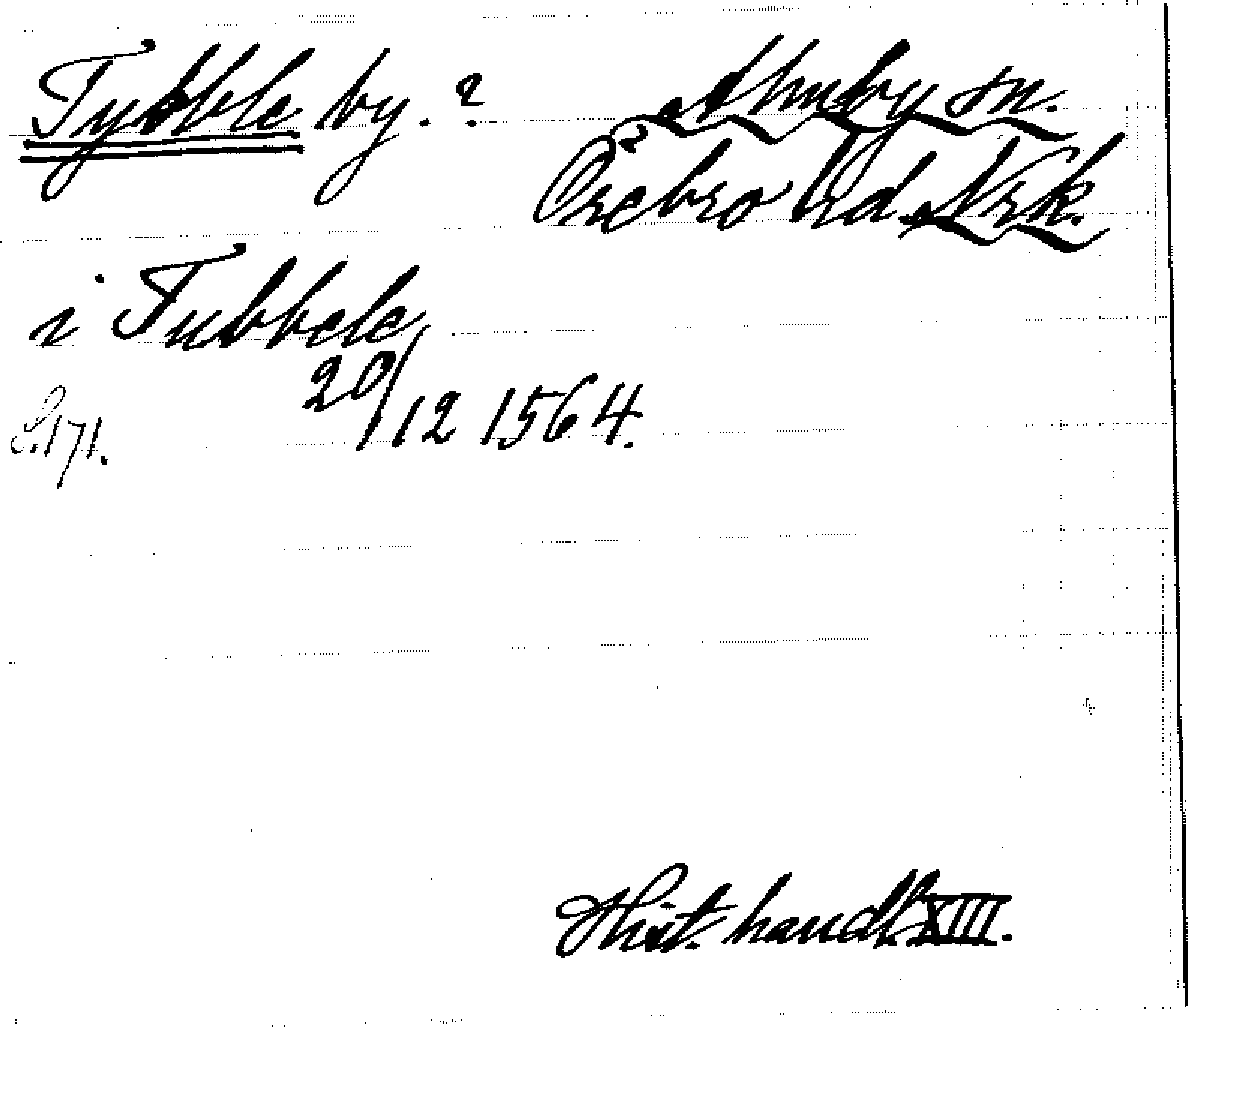 Tybble by. ? Almby sn.
Örebro hd. Nrk.
i Tubbele
20/12 1564.
S. 171.
Hist. handl. XIII.